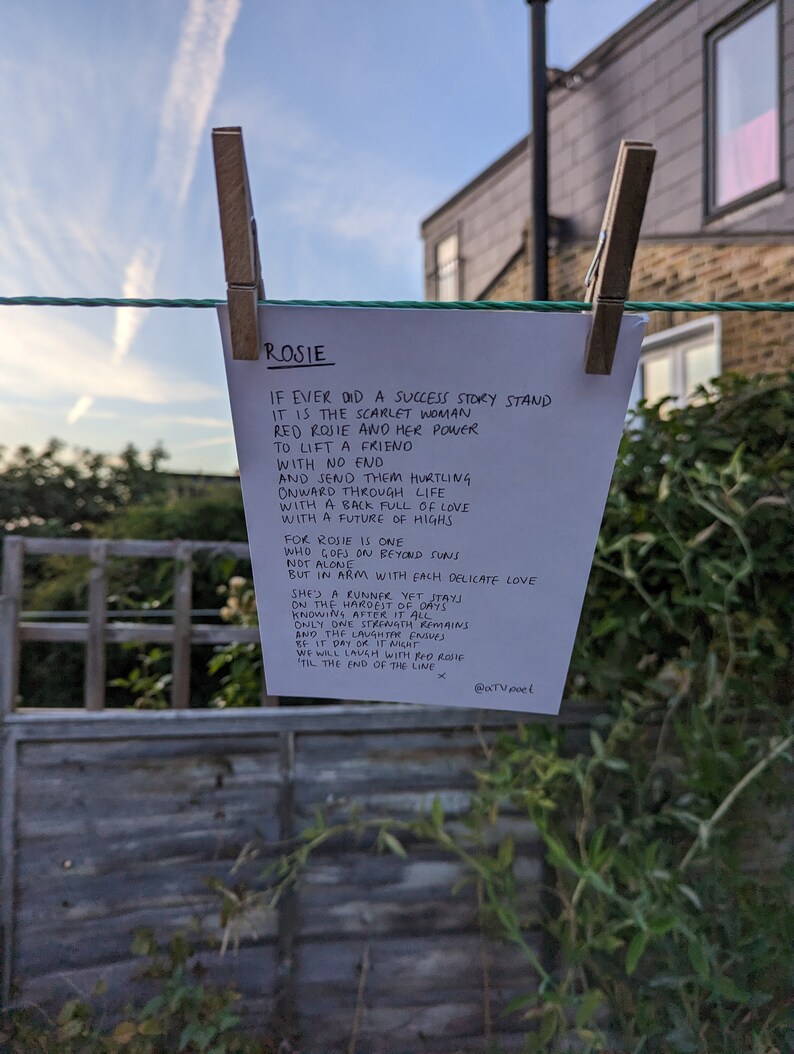 ROSIE
IF EVER DID A SUCCESS STORY STAND
IT IS THE SCARLET WOMAN
RED ROSIE AND HER POWER
TO LIFT A FRIEND
WITH NO END
AND SEND THEM HURTLING
ONWARD THROUGH LIFE
WITH A BACK FULL OF LOVE
WITH A FUTURE OF HIGHS
FOR ROSIE IS ONE
WHO GOES ON BEYOND SUNS
NOT ALONE
BUT IN ARM WITH EACH DELICATE LOVE
SHE'S A RUNNER YET STAYS
ON THE HARDEST OF DAYS
KNOWING AFTER IT ALL
ONLY ONE STRENGTH REMAINS
AND THE LAUGHTER ENSUES
BE IT DAY OR IT NIGHT
WE WILL LAUGH WITH RED ROSIE
'TIL THE END OF THE LINE
x
@aTVpoet